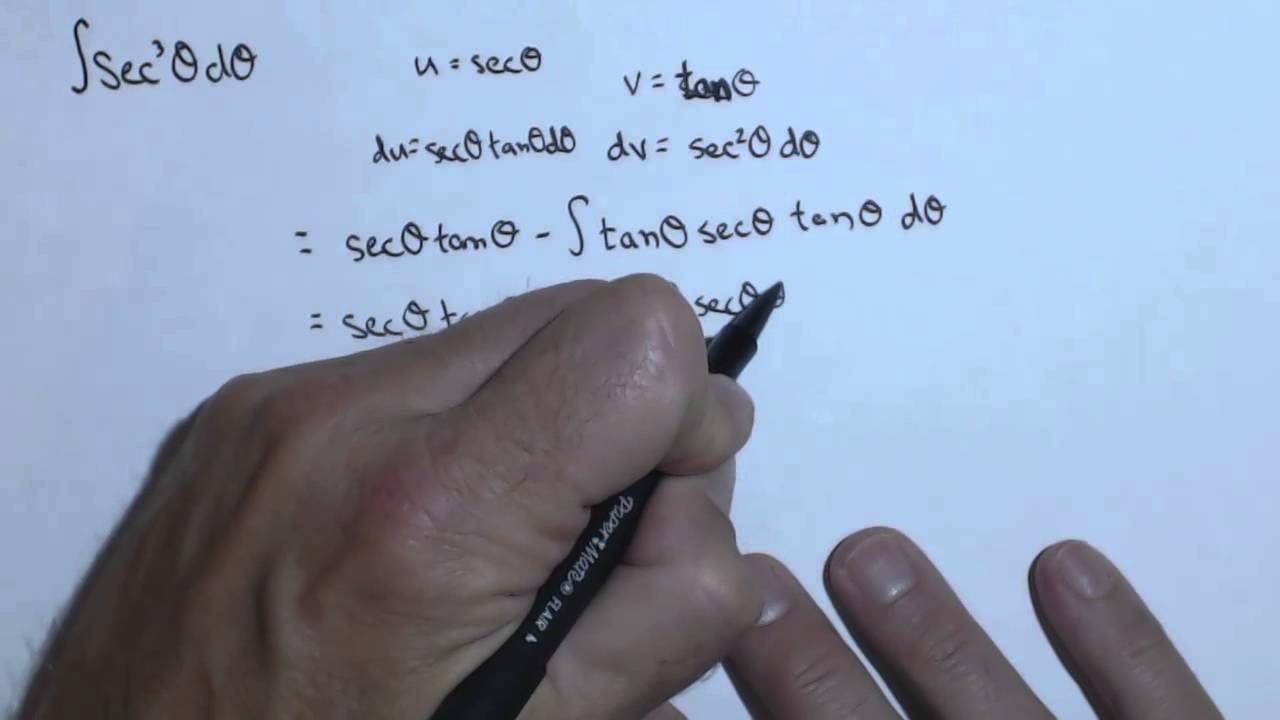 ∫sec³θdθ u = secθ v = tanθ
du=secθtanθdθ dv = sec²θ dθ
= secθtanθ - ∫tanθ secθ tanθ dθ
= secθ secθ
Paper:Mate FLAIR